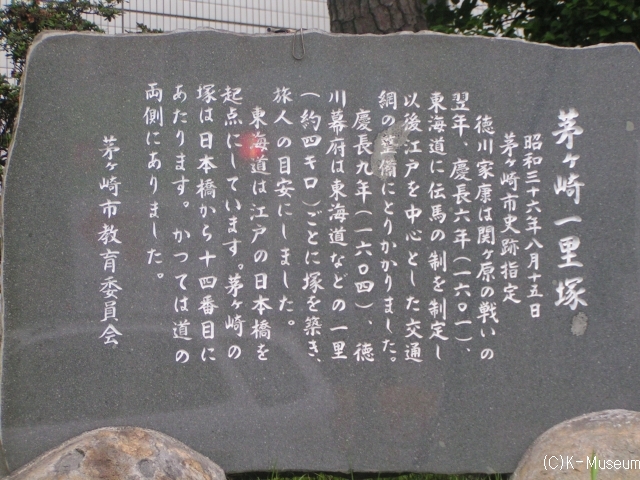 茅ヶ崎一里塚
昭和三十六年八月十五日
茅ヶ崎市史跡指定
徳川家康は関ヶ原の戦いの
翌年、慶長六年(一六〇一)、
東海道に伝馬の制を制定し
以後江戸を中心とした交通
網の整備にとりかかりました。
慶長九年(一六〇四)、徳
川幕府は東海道などの一里
(約四キロ)ごとに塚を築き、
旅人の目安にしました。
東海道は江戸の日本橋を
起点にしています。茅ヶ崎の
塚は日本橋から十四番目に
あたります。かつては道の
両側にありました。
茅ヶ崎市教育委員会
(C)K-Museum